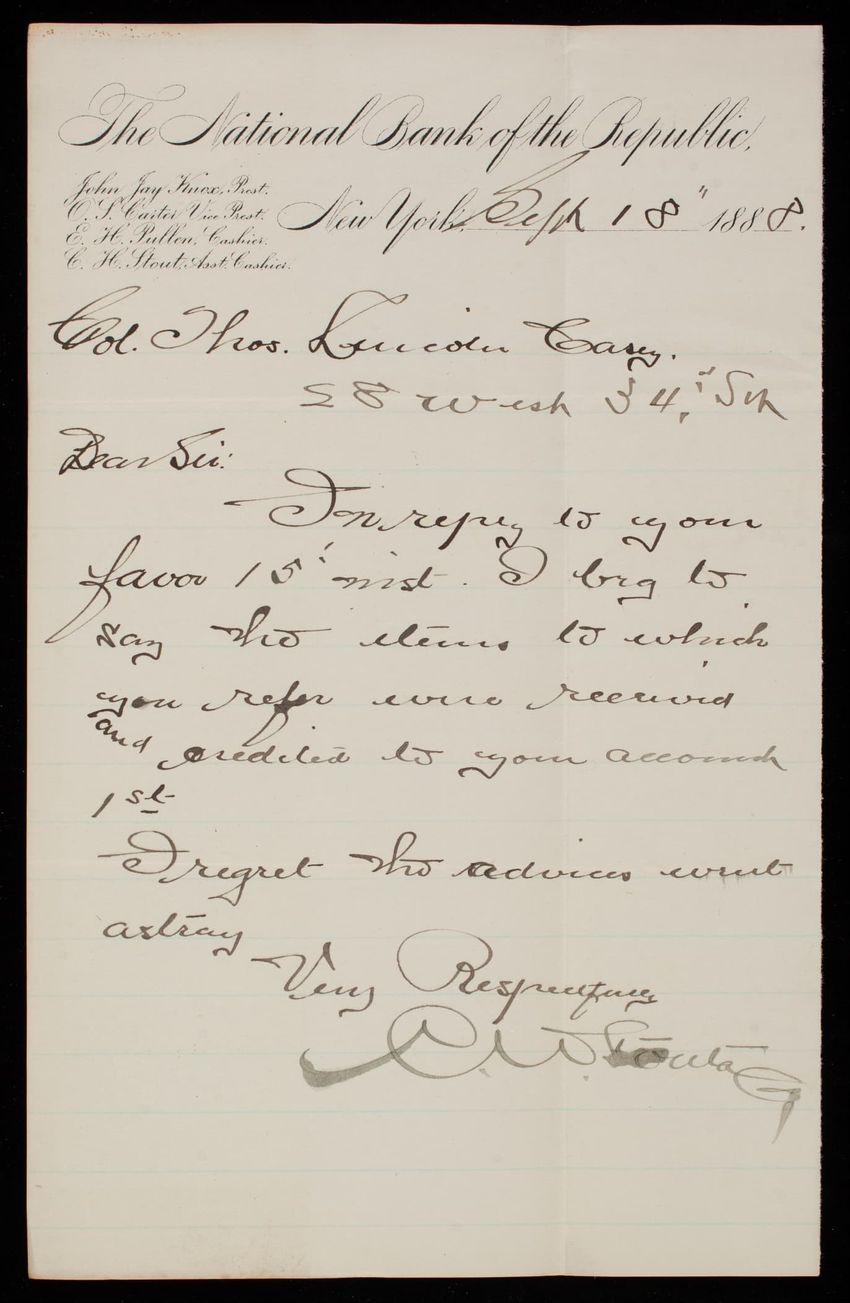 The National Bank of the Republic,
John Jay Knox, Prest.
O. S. Carter Vice Prest.
E. H. Pullen, Cashier.
C. H. Stout, Asst. Cashier.
New York, Sept 18" 1888.
Col. Thos. Lincoln Casey.
28 West 34, St
Dear Sir:
In reply to your
favor 15' inst. I beg to
say the items to which
you refer were received
and credited to your account
1st
I regret the advices went
astray
Very Respectfully
Stout